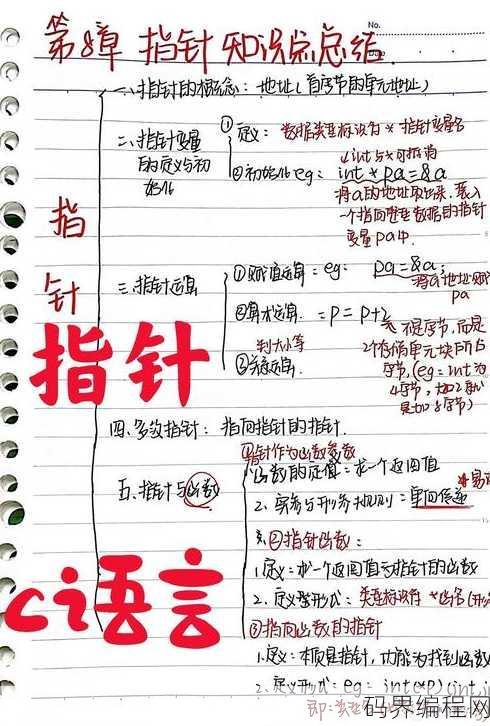 No.
Date
第8章 指针知识点总结.
一、指针的概念: 地址(首字节的单元地址)
二、指针变量的定义与初始化
① 定义: 数据类型标识符 * 指针变量名
↓int与*可抵消
②初始化eg: int * pa=&a
将a的地址取出来,装入
一个指向整型数据的指针
变量pa中.
指针
三、指针运算
①赋值运算: eg: pa=&a;
将a地址赋
pa
②算术运算. = P=P+2
不是字节,而是
2个存储单元块所占
字节,(eg=int为
4字节,加2就
是加8字节)
判大小等
③关系运算.
指针
四、多级指针: 指向指针的指针.
五、指针与函数
①指针作为函数参数
函数的返值=求一个返回值
2、实参与形参规则=单向传递
②指针函数:
1.定义:求一个返回值为指针的函数
2.定义形式: 类型标识符 *函名(形
③指向函数的指针
1.定义:本质是指针,功能为找到函数
2.定义形式: eg: int(*p)(int,i
ci语言
码界编程网